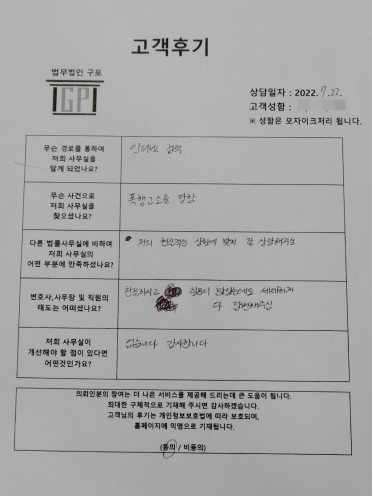 고객후기
법무법인 구포
GP
상담일자 : 2022. 7. 22.
고객성함 :
※ 성함은 모자이크처리 됩니다.
무슨 경로를 통하여
저희 사무실을
알게 되었나요?
인터넷 검색
무슨 사건으로
저희 사무실을
찾으셨나요?
폭행 고소를 당함
다른 법률사무실에 비하여
저희 사무실의
어떤 부분에 만족하셨나요?
저의 현실적인 상황에 맞게 잘 상담해주심
변호사,사무장 및 직원의
태도는 어떠셨나요?
친절하시고 질문이 많았는데도 세세하게
다 답변해주심
저희 사무실이
개선해야 할 점이 있다면
어떤것인가요?
없습니다 감사합니다
의뢰인분의 참여는 더 나은 서비스를 제공해 드리는데 큰 도움이 됩니다.
최대한 구체적으로 기재해 주시면 감사하겠습니다.
고객님의 후기는 개인정보보호법에 따라 보호되며,
홈페이지에 익명으로 기재됩니다.
(동의 / 비동의)